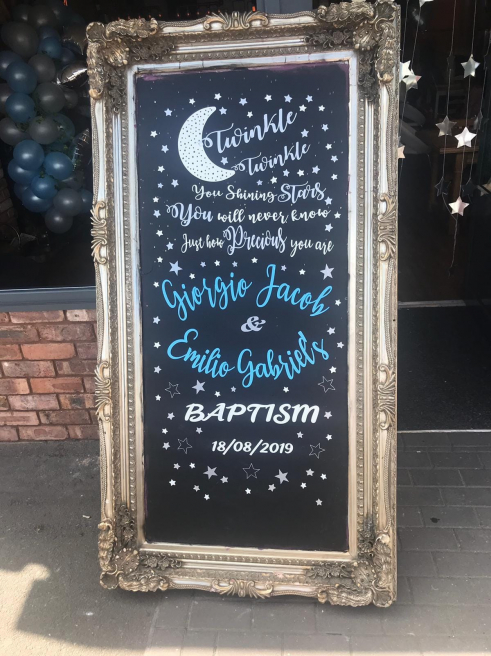 Twinkle
Twinkle
You Shining Stars
You will never know
Just how Precious you are
Giorgio Jacob
&
Emilio Gabriel's
BAPTISM
18/08/2019